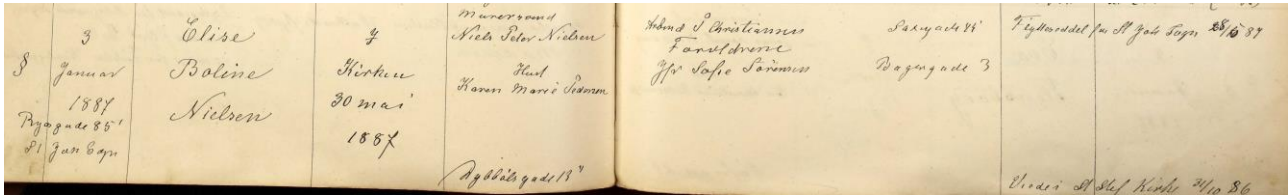 3
§ Januar
1887
Ryesgade 85
St Joh Sogn
Elise
Boline
Nielsen
Kirken
30 mai
1887
Niels Peter Nielsen
Hust
Karen Marie Pedersen
Dybbølsgade 13
Arbmd P Christiansen
Forældrene
Jfr Sofie Sörensen
Saxogade
Bagergade 3
Flytteseddel fra St Joh Sogn 87
Viede i St Stef Kirke 86